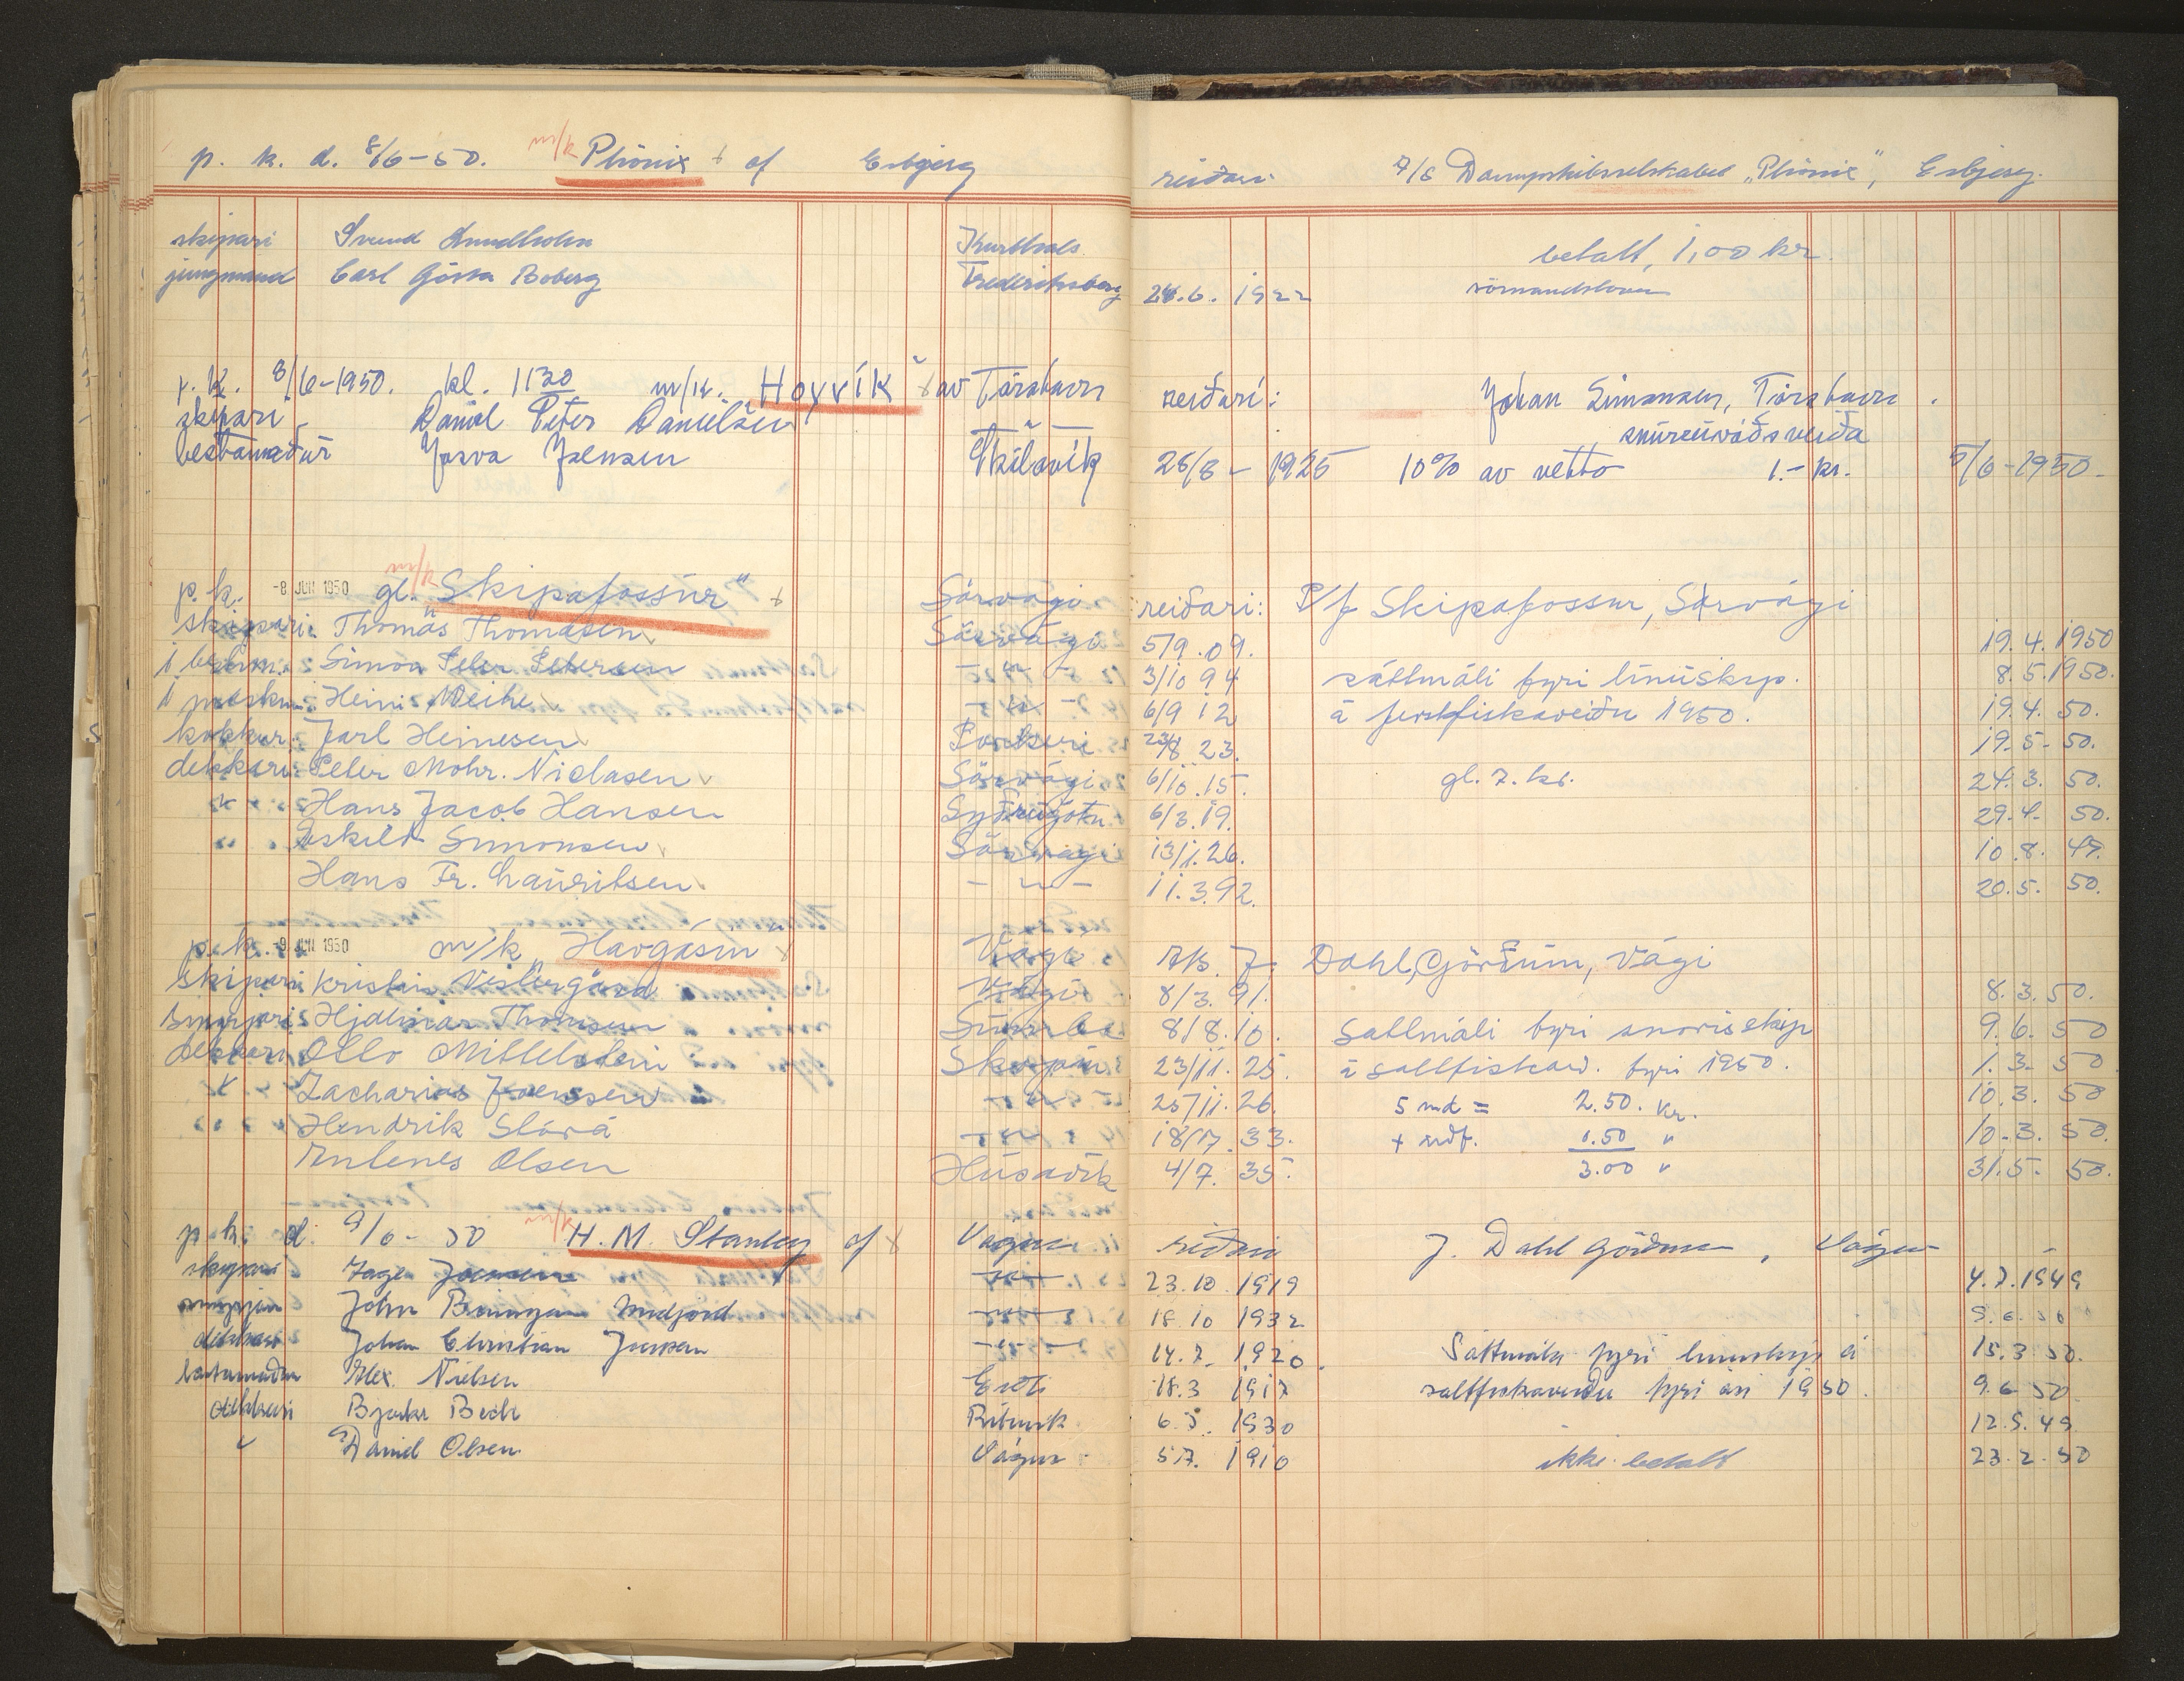 p. k. d. 8/6-50. m/k Phönix + af Esbjerg reiðari A/S Dampskibsselskabet „Phönix", Esbjerg.
skipari Svend
jungmand Carl Gösta Boberg Frederiksberg 24.6. 1922
betalt, 1,00 kr.
sömandsloven
p. k. 8/6-1950. kl. 1130 m/k. Hoyvík av Tórshavn reiðari: Johan Simonsen, Tórshavn.
skipari Daniel Peter Danielsen snurruváðsveiða
bestamaður Jóava Joensen Skálavík 26/8- 1925 10% av netto 1.- kr. 5/6-1950-
p. k. -8 JUN 1950 m/k gl. „Skipafossur" + Sörvági reiðari: P/f Skipafossur, Sörvági
skipari: Thomas Thomasen Sörvági 5/9.09. 19.4.1950
1 bestm. Simon Peter Petersen - " - 3/10 94 sáttmáli fyri línuskip. 8.5.1950.
1 maskm. Heini Weihe - " - 6/9 12 á ferskfiskaveiðu 1950. 19.4. 50.
kokkur: Jarl Heinesen 23/8 23. 19-5- 50.
dekkari: Peter Mohr. Niclasen Sörvági 6/10.15. gl. 7. kr. 24.3. 50.
" Hans Jacob Hansen Syðrugötu 6/3.19. 29.4. 50.
" Eskild Simonsen Sörvági 13/1.26. 10.8. 49.
Hans Fr. Lauritsen - " - 11.3.92. 20.5. 50.
p. k. -9 JUN 1950 m/k „Havgásin" + Vági A/S. J. Dahl, Görðum, Vági
Skipari Kristin Vestergård Vági 8/3.91. 8.3.50.
Smyrjari: Hjalmar Thomsen Sumba 8/8.10. Sáttmáli fyri snorisskip 9.6. 50
dekkari Otto Mittelstein Skopun 23/11.25. á saltfiskav. fyri 1950. 1.3. 50
" Zacharias Joensen - " - 25/11.26. 5 md = 2.50. kr. 10.3. 50
" Hendrik Stórá - " - 18/7.33. + 0.50 " 10-3. 50.
Enlenes Olsen Húsavík 4/7. 35. 3.00 " 31.5- 50.
p. k. d. 9/6- 50 m/k H. M. Stanley af + Vágur reiðari J. Dahl Görðum, Vágur
skipari Tage Joensen - " - 23.10.1919 4.7.1949
smyrjari John Midjord - " - 18.10 1932 9.6.50
dekkari Johan Christian Joensen - " - 14.7. 1920. Sáttmála fyri línuskip á 15.3 50.
bestamaður Alex. Nielsen 18.3 1917 saltfiskaveiðu fyri ári 1950. 9.6 50
dekkari Bjarke Bech 6.5. 1930 12.5.49
" Daniel Olsen Vágur 5.7. 1910 ikki betalt 23.2.50